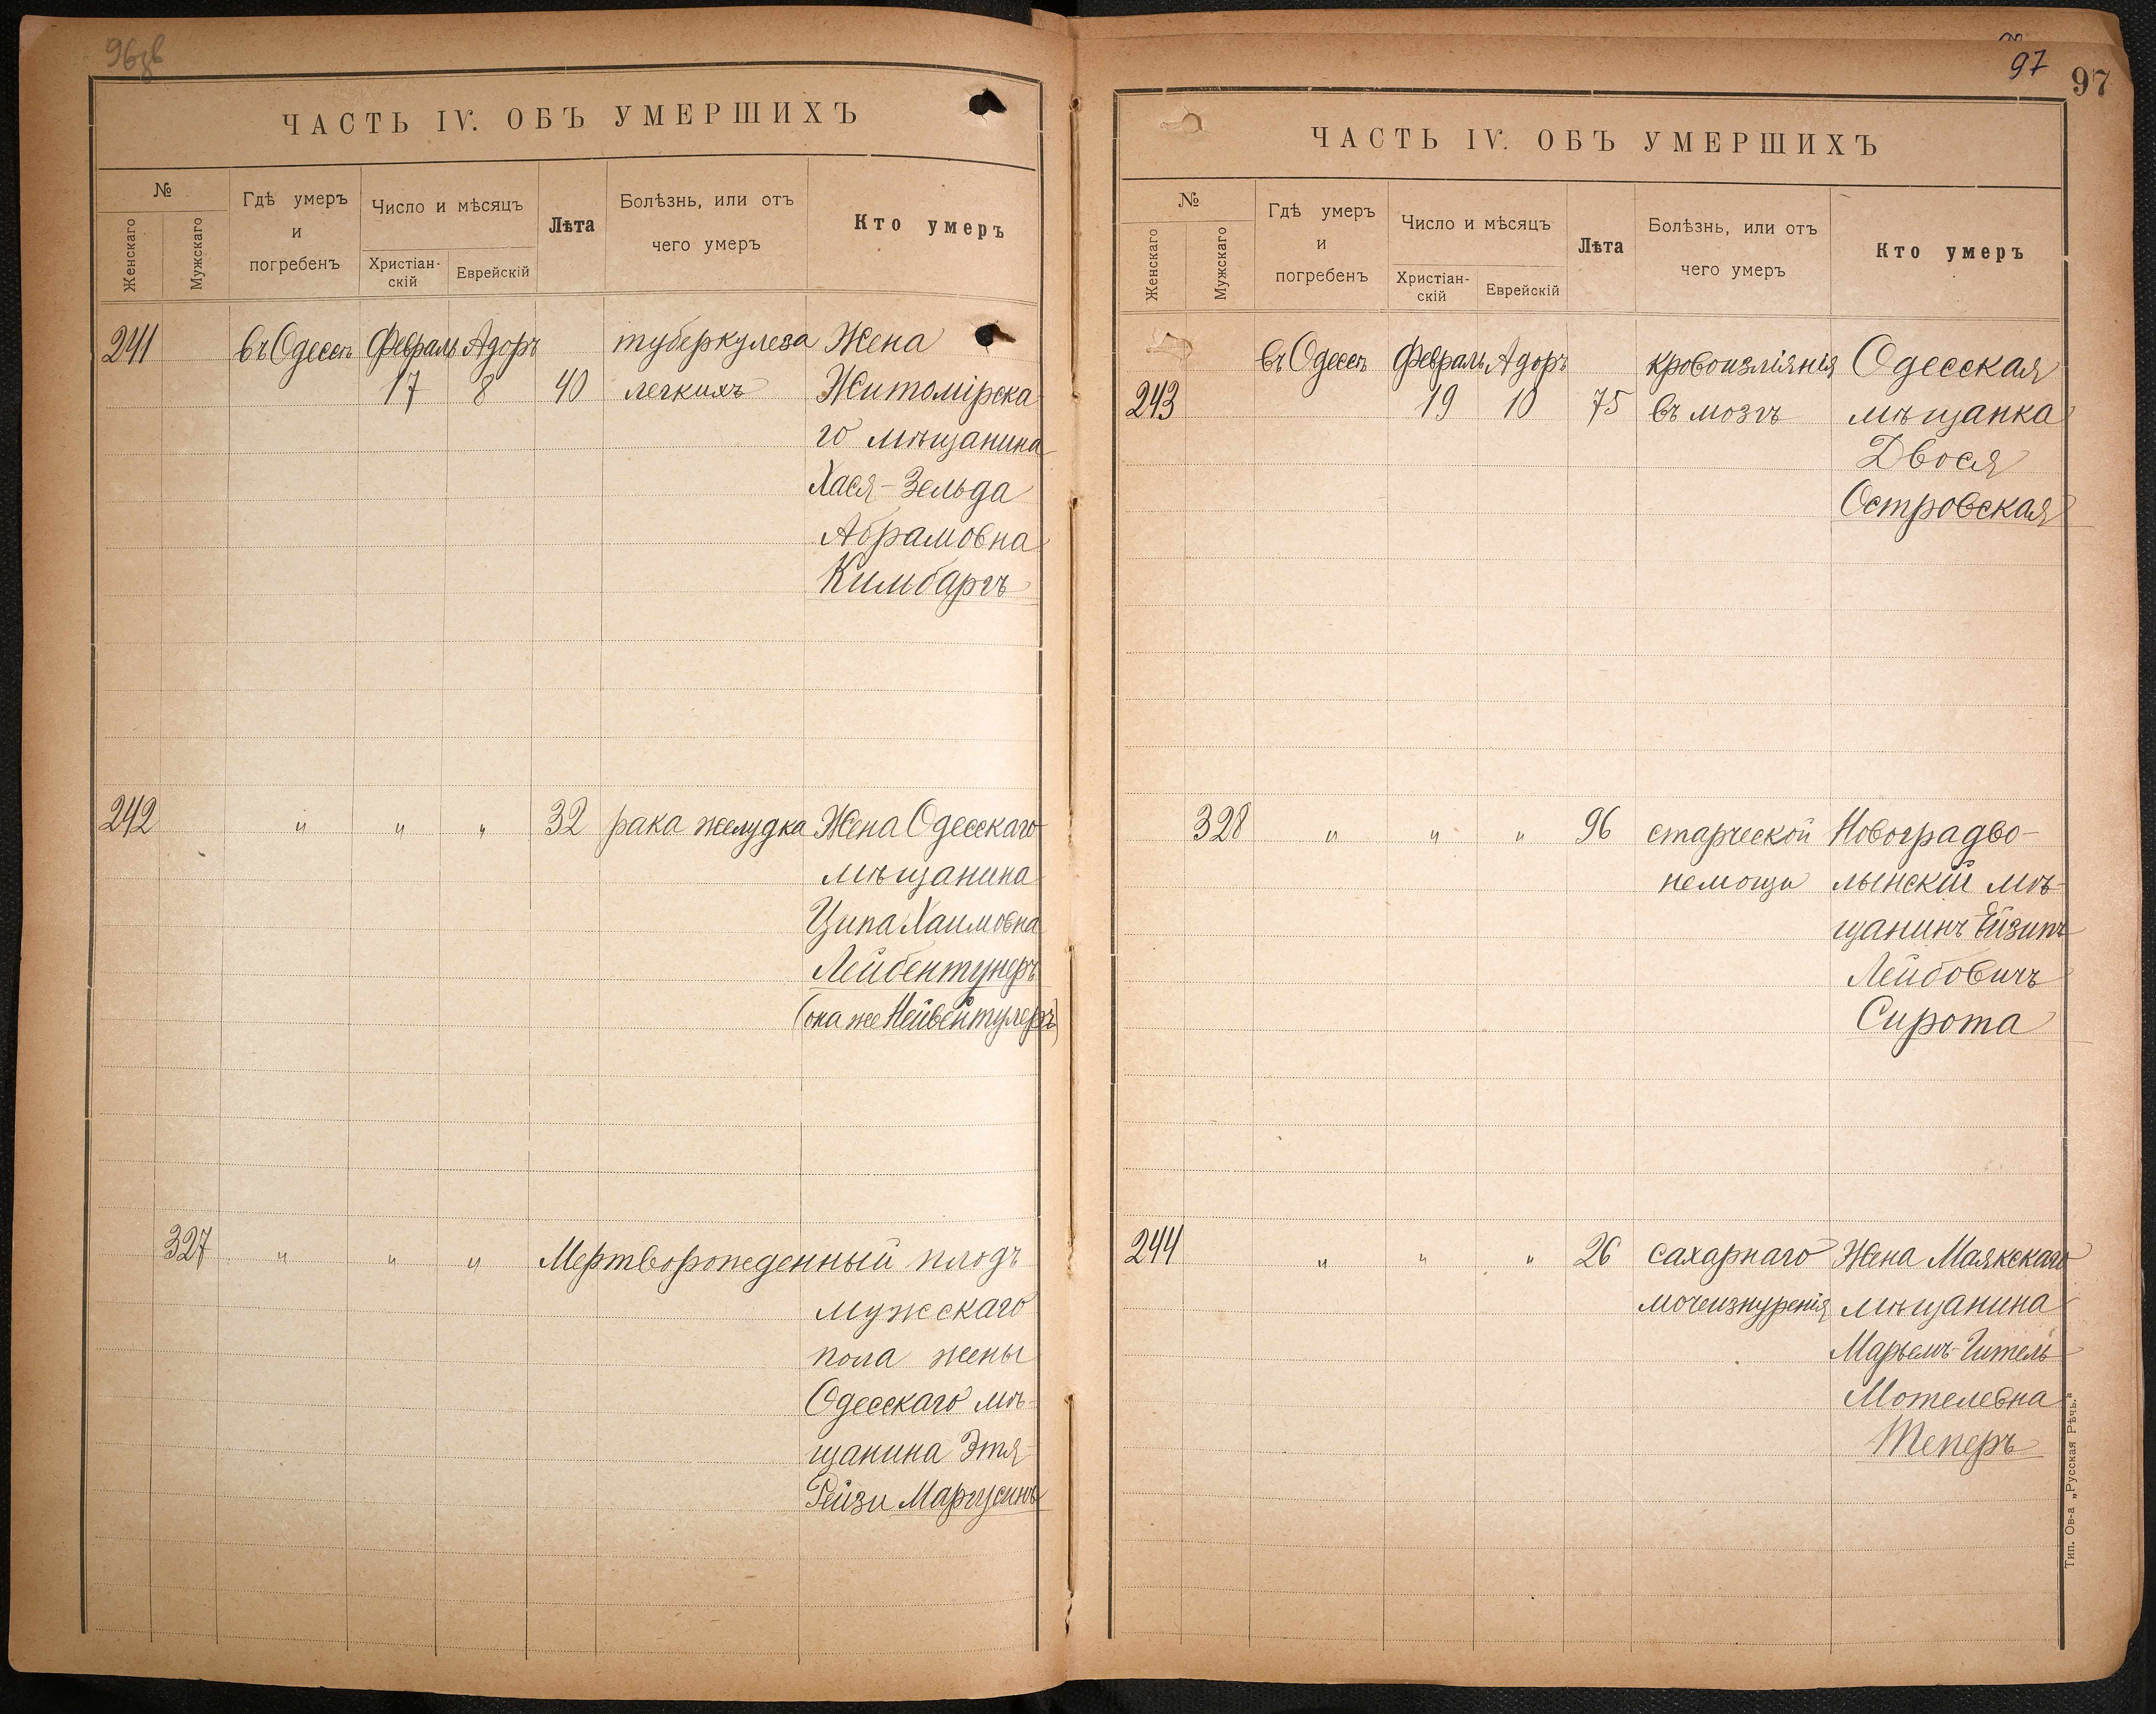 96 об
ЧАСТЬ IV. ОБЪ УМЕРШИХЪ
№
Женскаго
Мужскаго
Гдѣ умеръ
и
погребенъ
Число и мѣсяцъ
Христіан-
скій
Еврейскій
Лѣта
Болѣзнь, или отъ
чего умеръ
Кто умеръ
241 въ Одессѣ Февраль Адоръ туберкулеза Жена
17 8 40 легкихъ Житомірска
го мѣщанина
Хася-Зельда
Абрамовна
Кимбаргъ
242 " " " 32 рака желудка Жена Одесскаго
мѣщанина
Ципа Хаимовна
Лейбентунеръ
(она же Нейвентулеръ)
327 " " " Мертворожденный плодъ
мужскаго
пола жены
Одесскаго мѣ-
щанина Этя-
Рейзи Маргусинъ
97
97
ЧАСТЬ IV. ОБЪ УМЕРШИХЪ
№
Женскаго
Мужскаго
Гдѣ умеръ
и
погребенъ
Число и мѣсяцъ
Христіан-
скій
Еврейскій
Лѣта
Болѣзнь, или отъ
чего умеръ
Кто умеръ
въ Одессѣ Февраль Адоръ кровоизліянія Одесская
243 19 10 75 въ мозгъ мѣщанка
Двося
Островская
328 " " " 96 старческой Новоградво-
немощи лынскій мѣ-
щанинъ Ейзипъ
Лейбовичъ
Сирота
244 " " " 26 сахарнаго Жена Маякскаго
мочеизнуренія мѣщанина
Марьемъ-Гитель
Мотелевна
Теперъ
Тип. Ов-а „Русская Рѣчь."